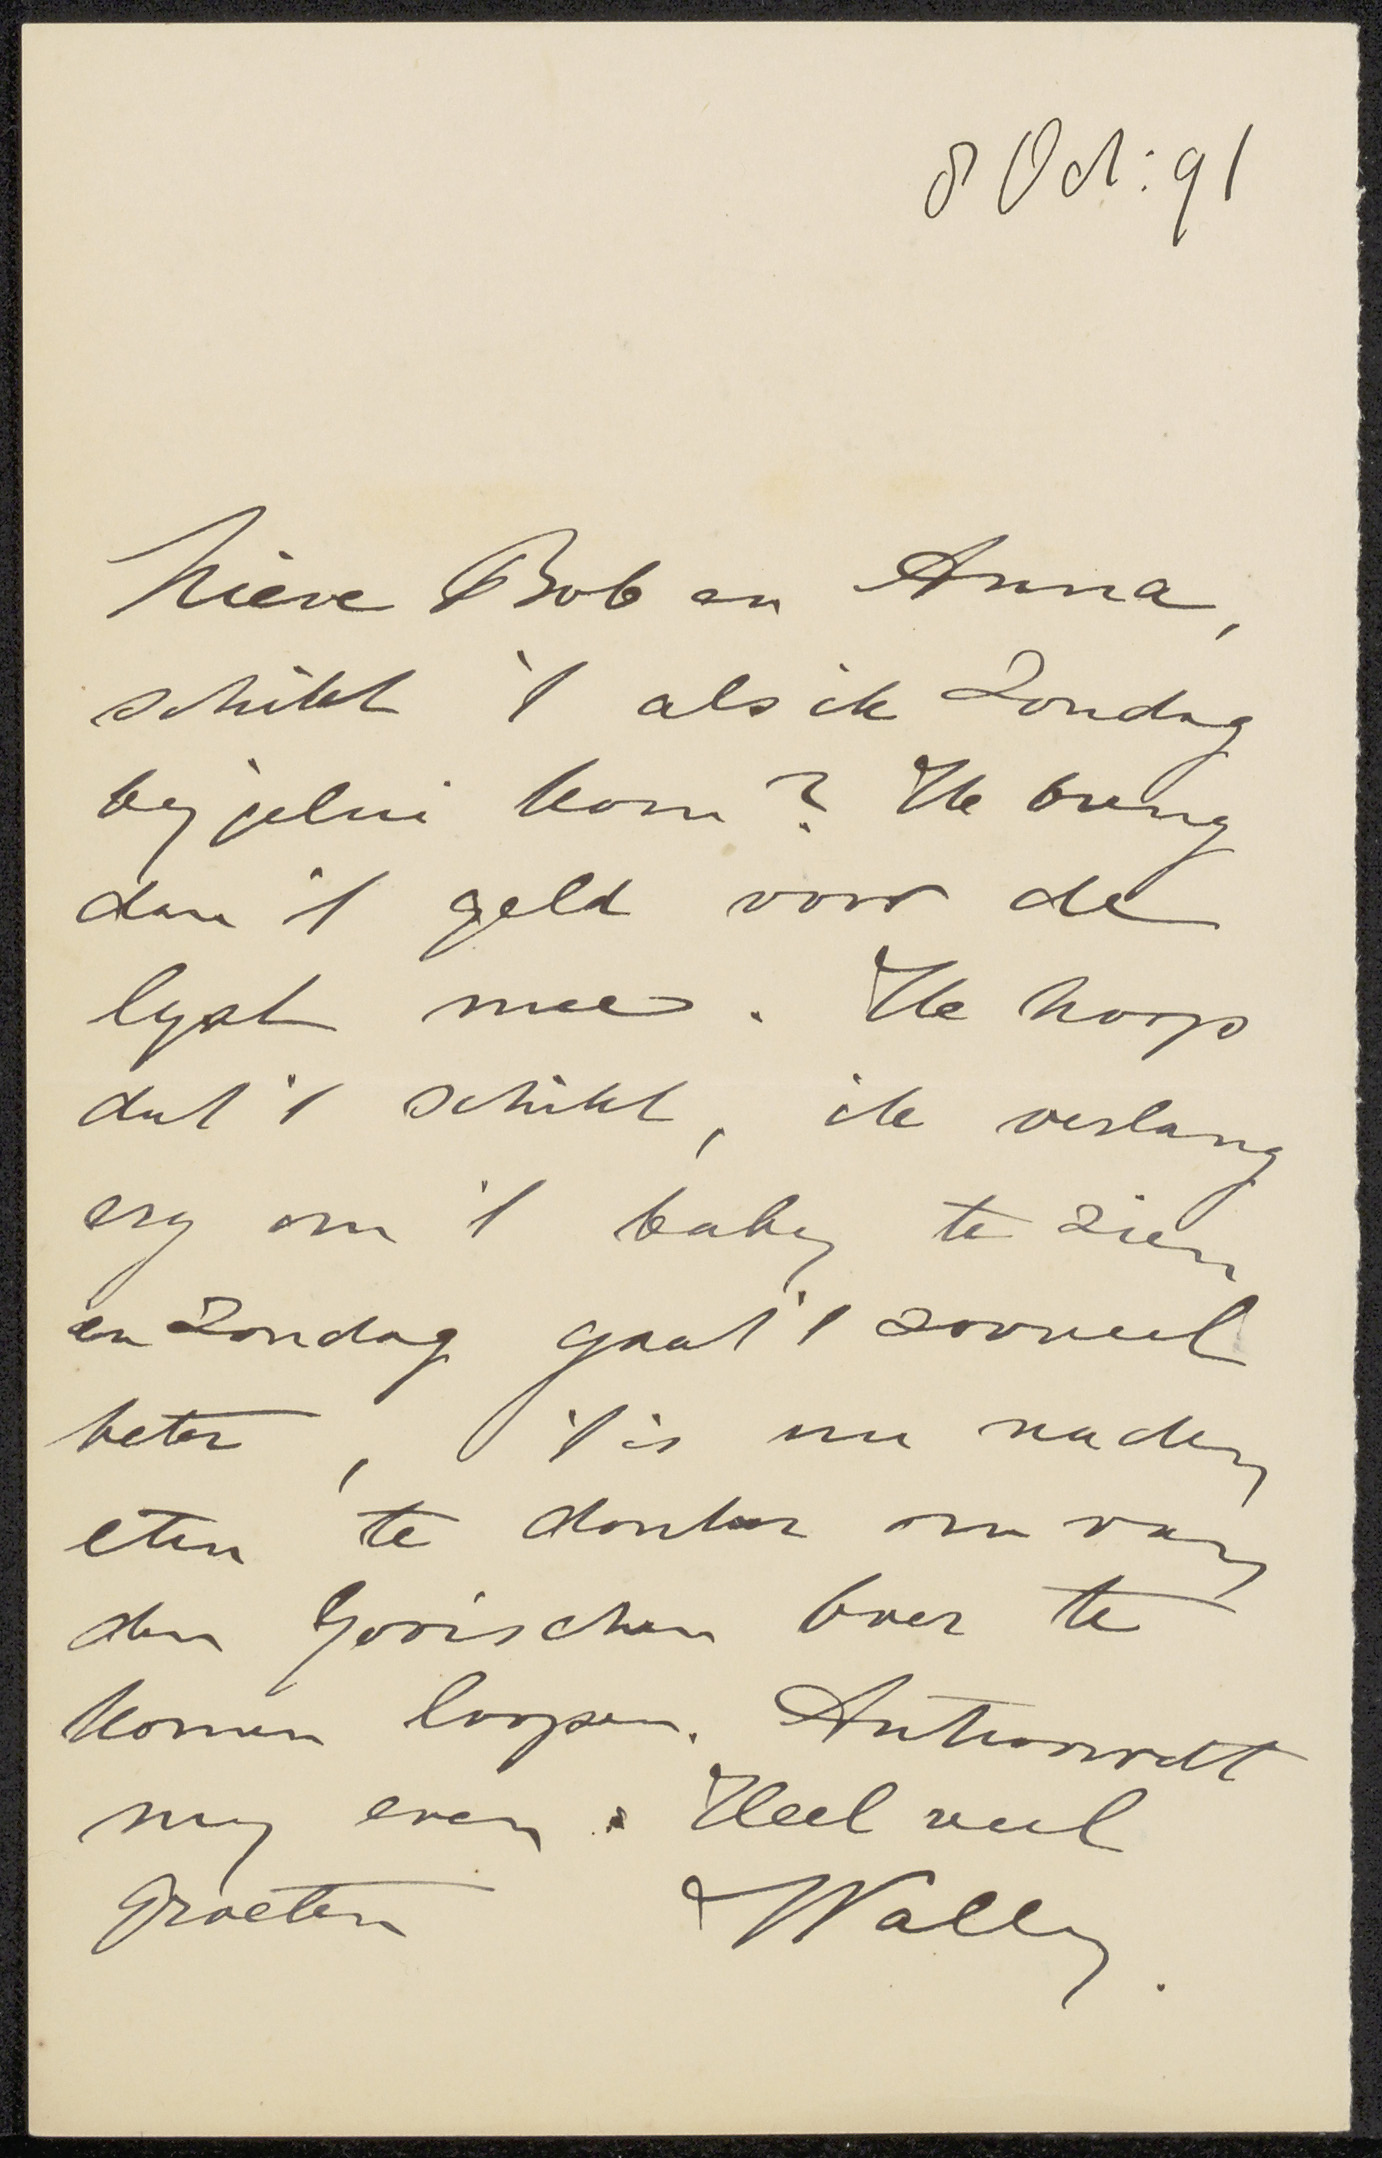 8 Oct: 91
Lieve Bob en Anna,
schikt 't als ik Zondag
by jelui kom? Ik breng
dan 't geld voor de
lyst mee. Ik hoop
dat 't schikt, ik verlang
erg om 't baby te zien
en Zondag gaat 't zooveel
beter, 't is nu na den
eten te donker om van
den Gooischen boer te
komen loopen. Antwoordt
my even. Heel veel
groeten Wally.